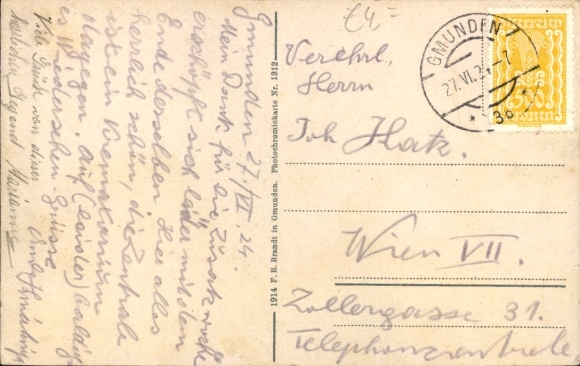 Gmunden 27/VI 24.
Mein Dank für die Zusatzwoche
erschöpft sich leider mit dem
Ende derselben Hier alles
herrlich schön, die Zentrale
ist ein Krematorium
dagegen. Auf (leider) baldiges
Wiedersehen Grüsse
Viele Grüsse von dieser
herrlichen Gegend Marianne
1914 F. E. Brandt in Gmunden. Photochromiekarte Nr. 1312
£4,-
Verehrl.
Herrn
Joh Hatz.
Wien VII.
Zollergasse 31.
Telephonzentrale
GMUNDEN
27.VI.24
* 3b *
Österreich
500
Kronen